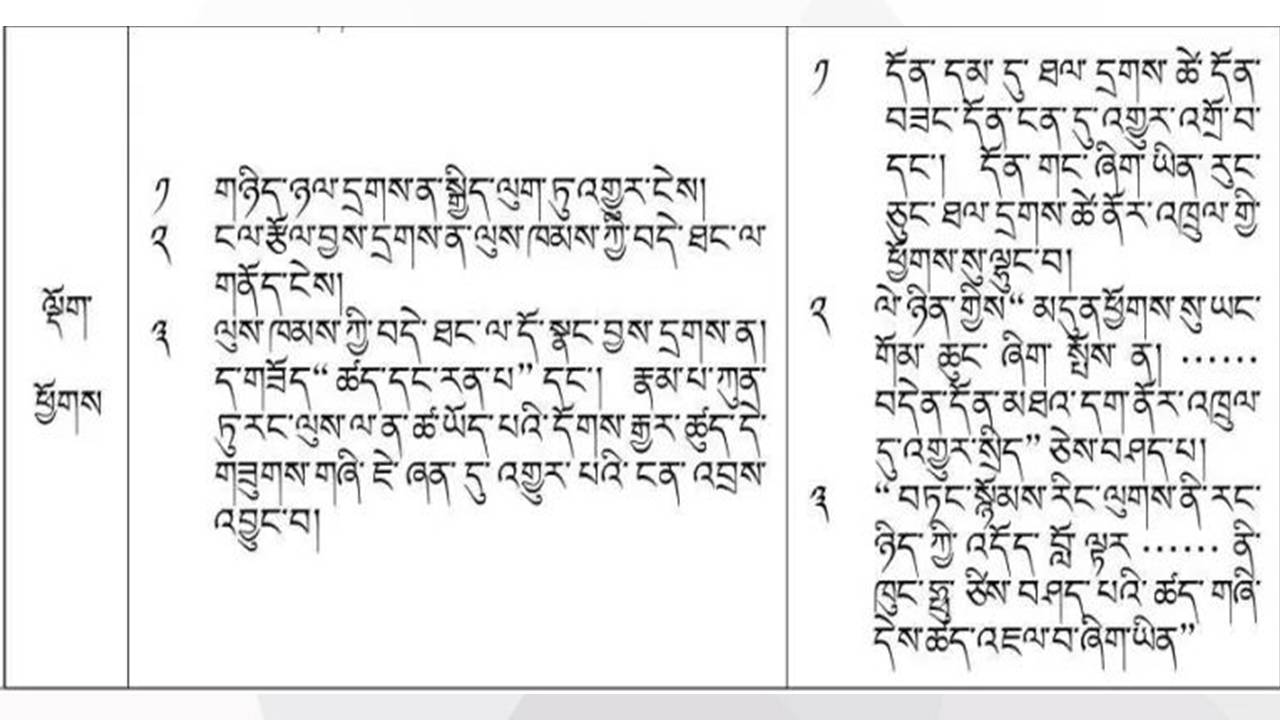 ལྡོག་
ཕྱོགས
༡ གཉིད་ཉལ་དྲགས་ན་སྒྱིད་ལུག་ཏུ་འགྱུར་ངེས།
༢ ངལ་རྩོལ་བྱས་དྲགས་ན་ལུས་ཁམས་ཀྱི་བདེ་ཐང་ལ་
གནོད་ངེས།
༣ ལུས་ཁམས་ཀྱི་བདེ་ཐང་ལ་དོ་སྣང་བྱས་དྲགས་ན།
ད་གཟོད“ ཚད་དང་རན་པ” དང་། རྣམ་པ་ཀུན་
ཏུ་རང་ལུས་ལ་ན་ཚ་ཡོད་པའི་དོགས་རྒྱར་ཚུད་དེ་
གཟུགས་གཞི་ཇེ་ཞན་དུ་འགྱུར་པའི་ངན་འབྲས་
འབྱུང་བ།
༡ དོན་དམ་དུ་ཐལ་དྲགས་ཚེ་དོན་
བཟང་དོན་ངན་དུ་འགྱུར་འགྲོ་བ་
དང་། དོན་གང་ཞིག་ཡིན་རུང་
ཅུང་ཐལ་དྲགས་ཚེ་ནོར་འཁྲུལ་གྱི་
ཕྱོགས་སུ་ལྷུང་བ།
༢ ལེ་ཉིན་གྱིས“ མདུན་ཕྱོགས་སུ་ཡང་
གོམ་ཆུང་ཞིག་སྤོས་ན། ……
བདེན་དོན་མཐའ་དག་ནོར་འཁྲུལ་
དུ་འགྱུར་སྲིད” ཅེས་བཤད་པ།
༣ “ བཏང་སྙོམས་རིང་ལུགས་ནི་རང་
ཉིད་ཀྱི་འདོད་བློ་ལྟར …… ནི་
ཁུང་ཧྥུ་ཙིས་བཤད་པའི་ཚད་གཞི་
དེས་ཚད་འཇལ་བ་ཞིག་ཡིན”